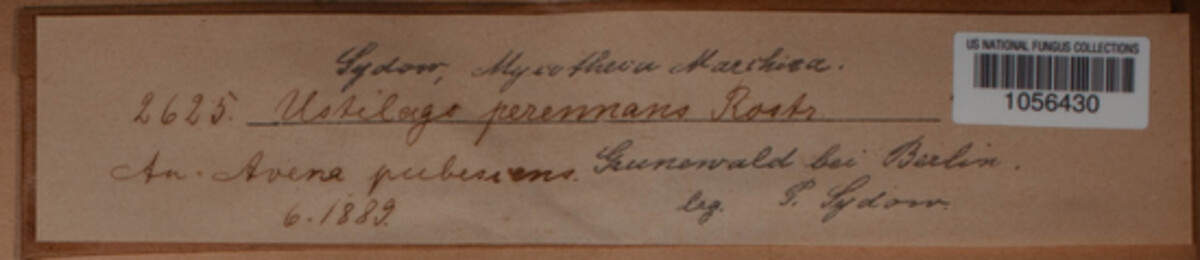 Sydow, Mycotheca Marchica.
US NATIONAL FUNGUS COLLECTIONS
1056430
2625. Ustilago perennans Rostr.
An. Avena pubescens. Grunewald bei Berlin.
6.1889. leg. P. Sydow.